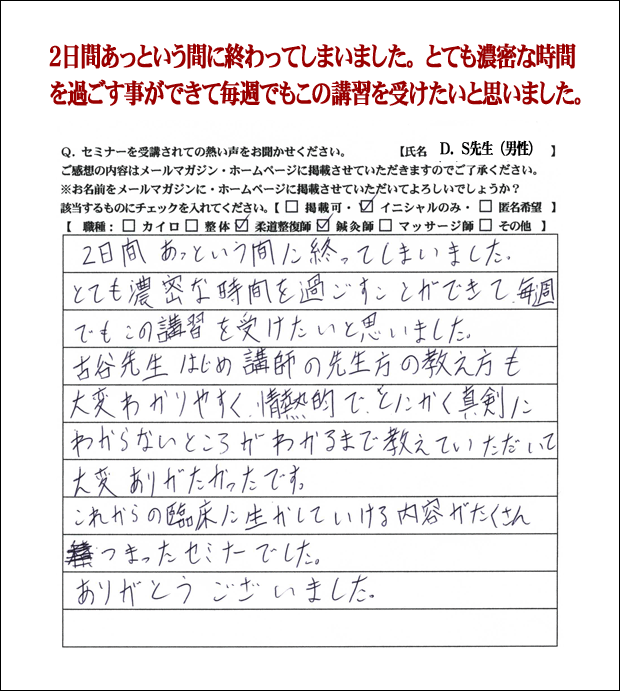 2日間あっという間に終わってしまいました。とても濃密な時間
を過ごす事ができて毎週でもこの講習を受けたいと思いました。
Q. セミナーを受講されての熱い声をお聞かせください。 【氏名 D. S先生（男性） 】
ご感想の内容はメールマガジン・ホームページに掲載させていただきますのでご了承ください。
※お名前をメールマガジンに・ホームページに掲載させていただいてよろしいでしょうか？
該当するものにチェックを入れてください。【 □ 掲載可・ ☑ イニシャルのみ・ □ 匿名希望 】
【 職種： □ カイロ □ 整体 ☑ 柔道整復師 ☑ 鍼灸師 □ マッサージ師 □ その他 】
2日間 あっという間に終ってしまいました。
とても濃密な時間を過ごすことができて、毎週
でもこの講習を受けたいと思いました。
古谷先生はじめ講師の先生方の教え方も
大変わかりやすく、情熱的で、とにかく真剣に
わからないところがわかるまで教えていただいて
大変ありがたかったです。
これからの臨床に生かしていける内容がたくさん
つまったセミナーでした。
ありがとうございました。